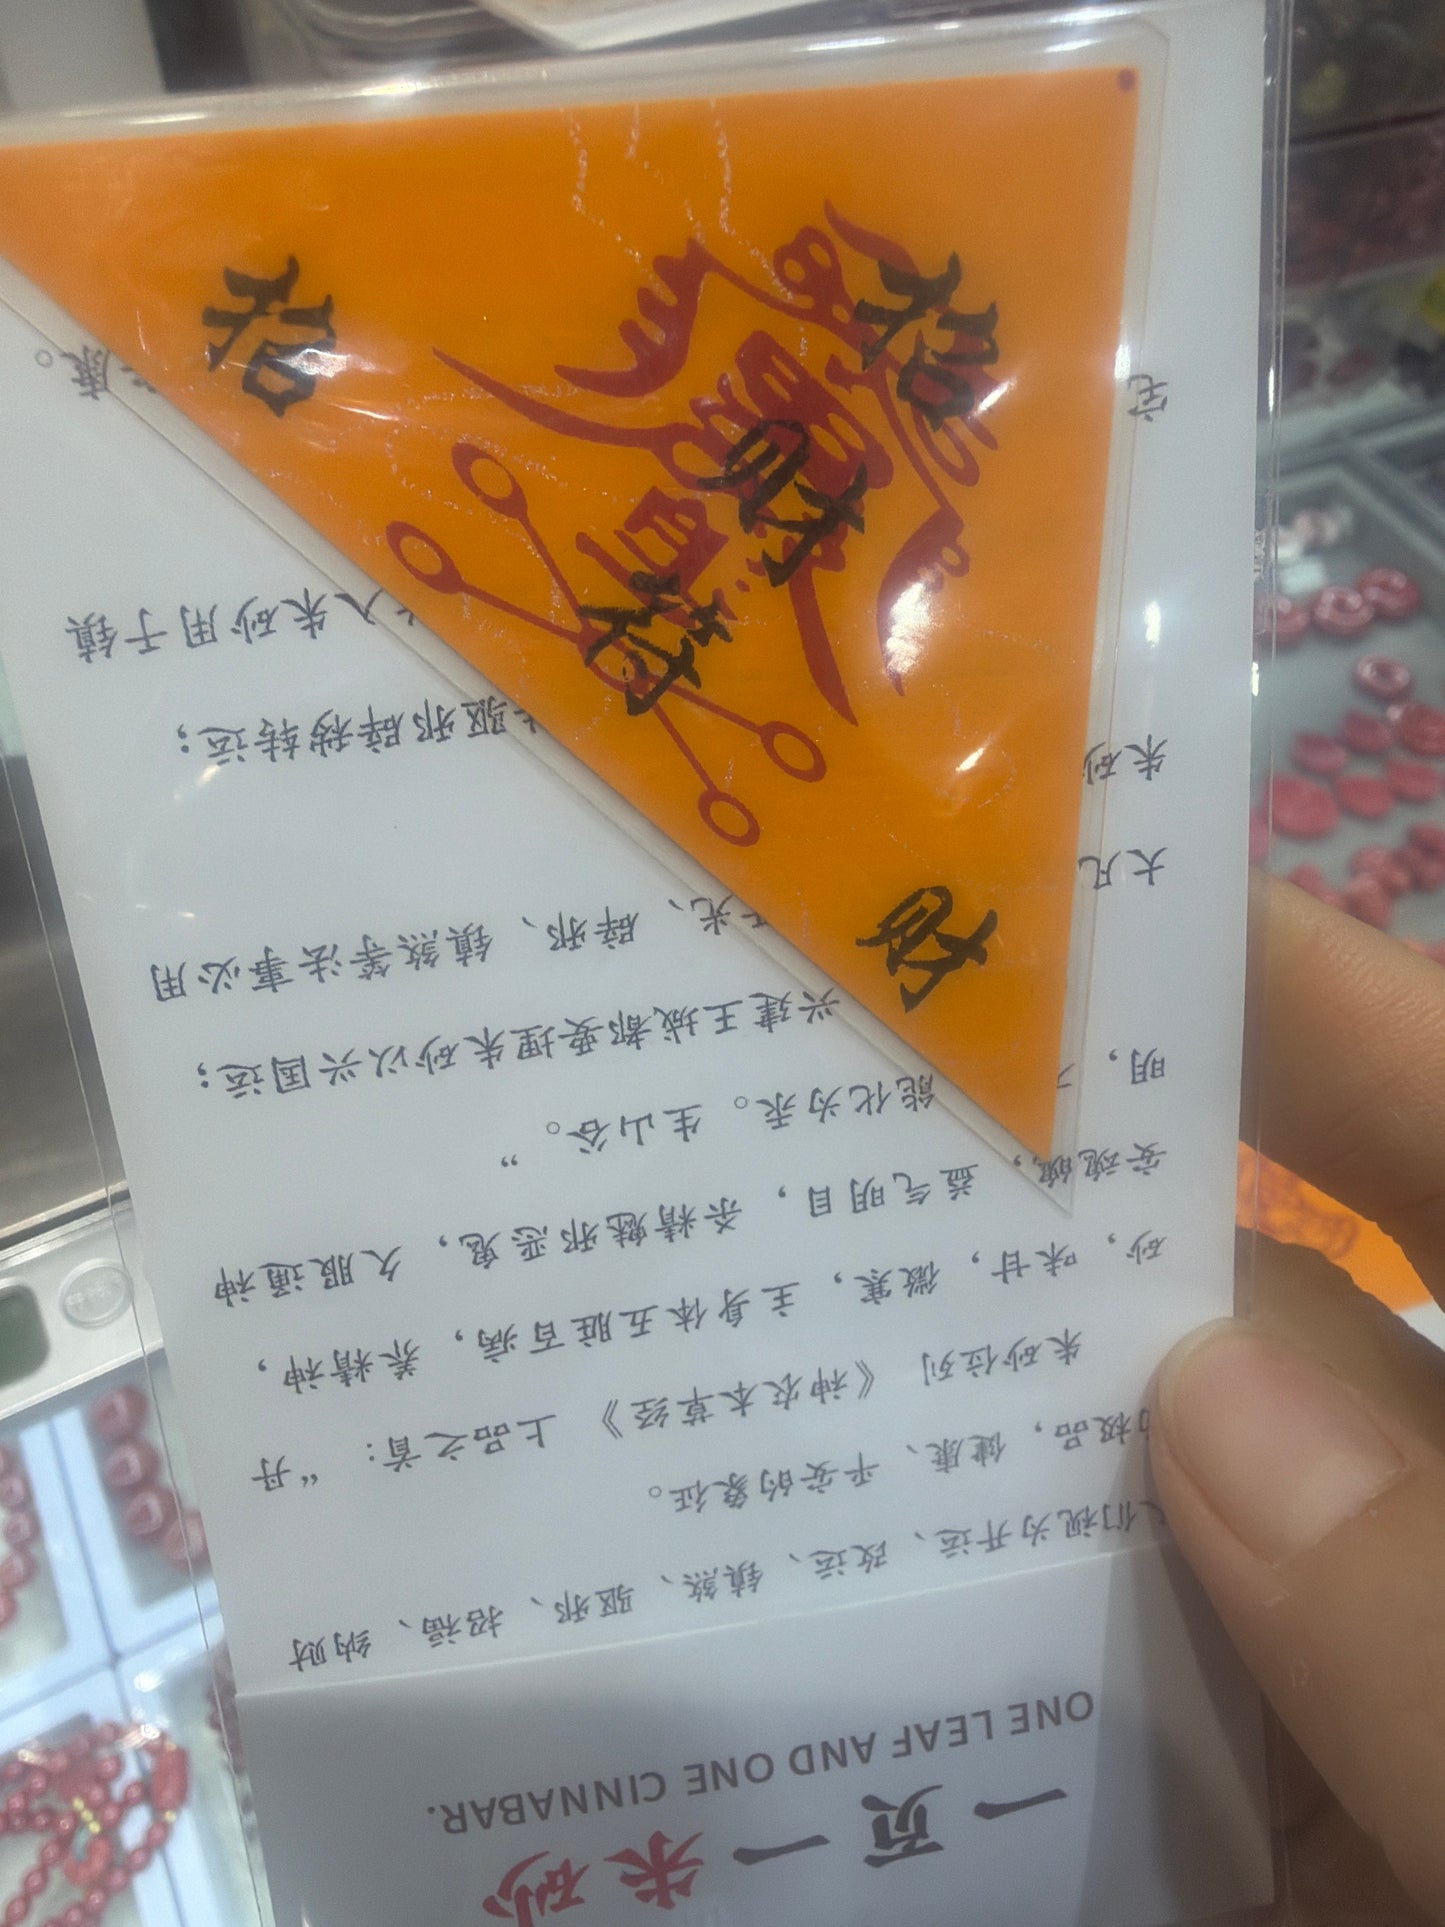 一页一朱砂
ONE LEAF AND ONE CINNABAR.
们视为开运、改运、镇煞、驱邪、招福、纳财
极品，健康、平安的象征。
朱砂位列《神农本草经》上品之首：“丹
砂，味甘，微寒，主身体五脏百病，养精神，
安魂魄，益气明目，杀精魅邪恶鬼，久服通神
明，能化为汞。生山谷。”
兴建王城都要埋朱砂以兴国运；
大凡光、辟邪、镇煞等法事必用
朱砂
驱邪辟秽转运；
人朱砂用于镇
宅
康。